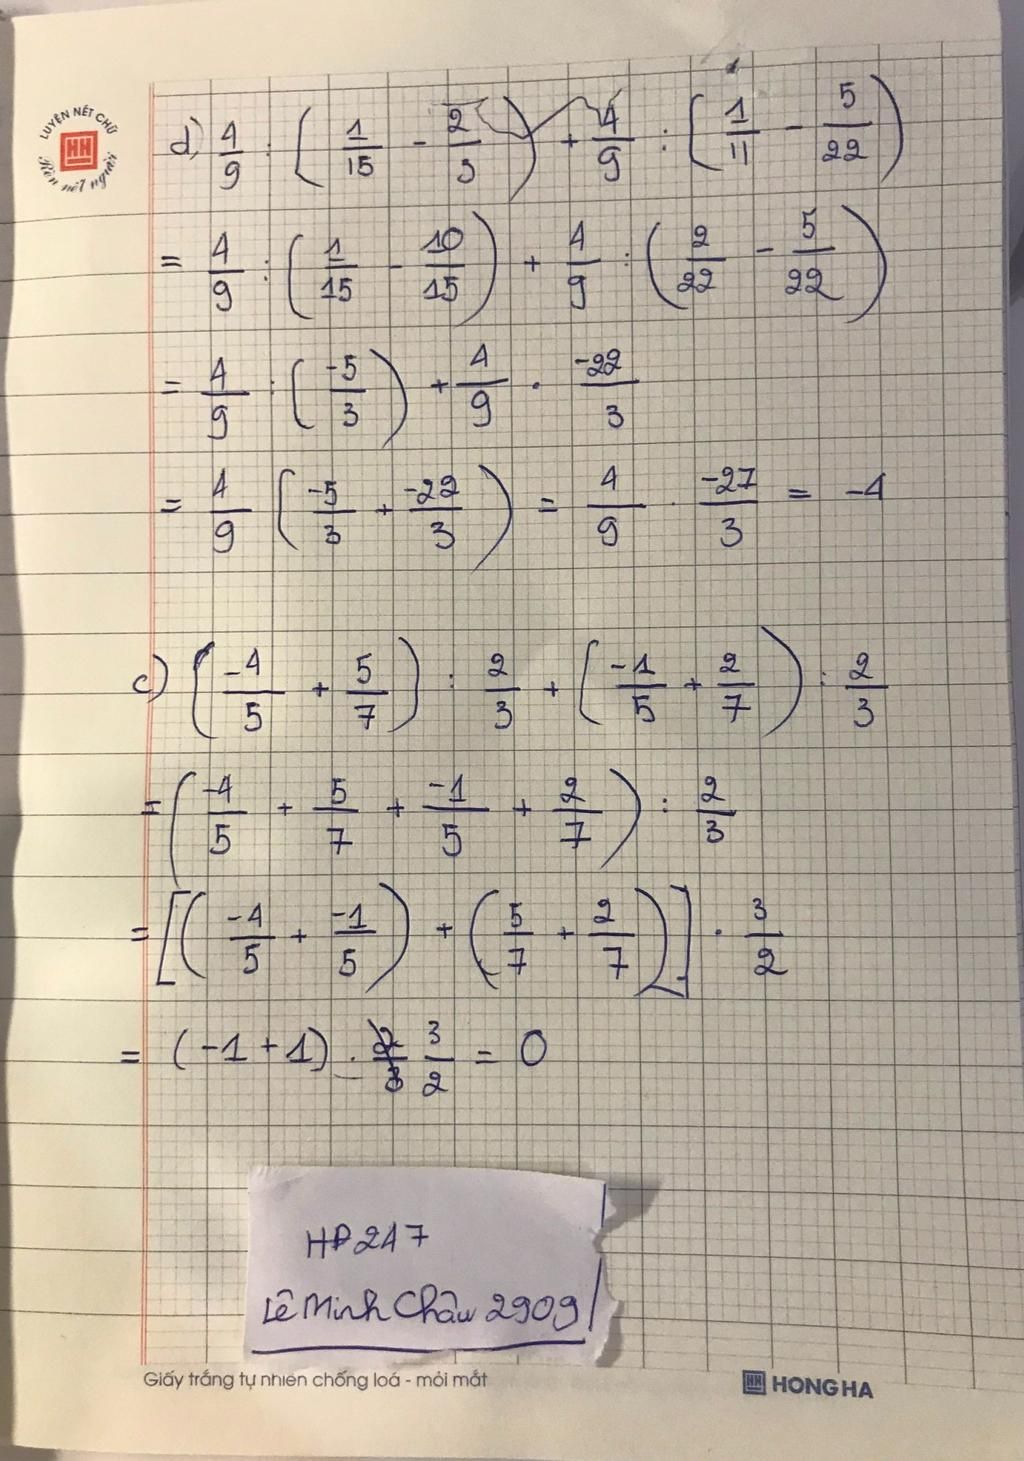 LUYỆN NÉT CHỮ
HH
Rèn nết người
d) 4/9 : (1/15 - 2/3) + 4/9 : (1/11 - 5/22)
= 4/9 : (1/15 - 10/15) + 4/9 : (2/22 - 5/22)
= 4/9 : (-5/3) + 4/9 · -22/3
= 4/9 (-5/3 + -22/3) = 4/9 · -27/3 = -4
c) (-4/5 + 5/7) : 2/3 + (-1/5 + 2/7) : 2/3
= (-4/5 + 5/7 + -1/5 + 2/7) : 2/3
= [(-4/5 + -1/5) + (5/7 + 2/7)] · 3/2
= (-1 + 1) · 3/2 = 0
HP247
Lê Minh Châu 2909
Giấy trắng tự nhiên chống loá - mỏi mắt
HH HONG HA